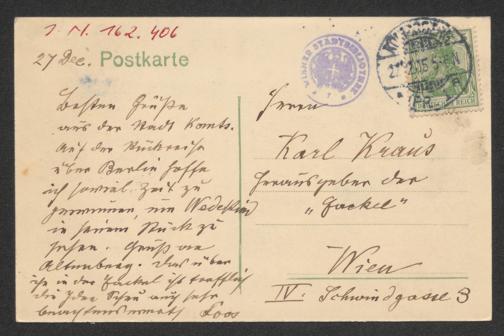 I. N. 162.406
27 Dec.
Postkarte
WIENER STADTBIBLIOTHEK
DEUTSCHES REICH
Besten Grüße
aus der Stadt Kants.
Auf der Rückreise
über Berlin hoffe
ich soviel Zeit zu
gewinnen, um Wedekind
in seinem Stück zu
sehen. Gruß an
Altenberg. Das über
ihn in der Fackel ist trefflich
die Idee Scheu auch sehr
beachtenswert Loos
Herrn
Karl Kraus
Herausgeber der
„Fackel"
Wien
IV. Schwindgasse 3